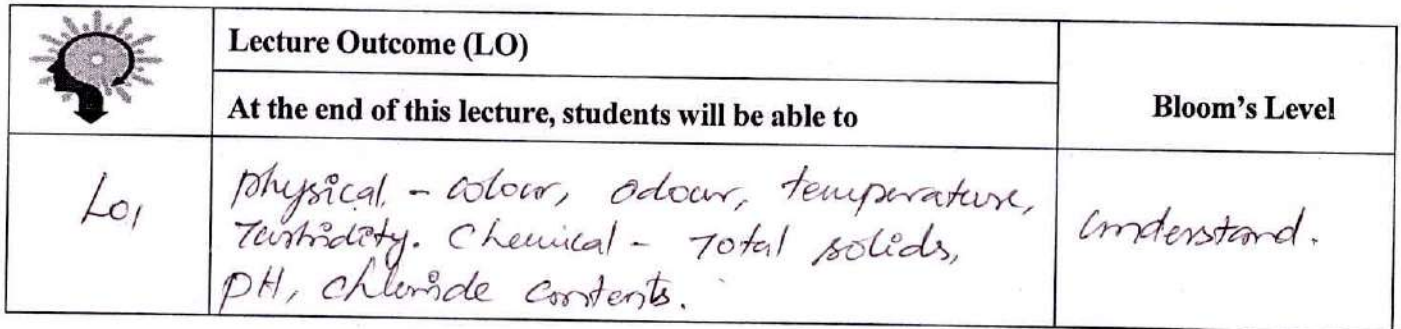 Lecture Outcome (LO)
At the end of this lecture, students will be able to
Bloom's Level
LO1
physical - colour, odour, temperature,
Turbidity. Chemical - Total solids,
pH, chloride contents.
understand.